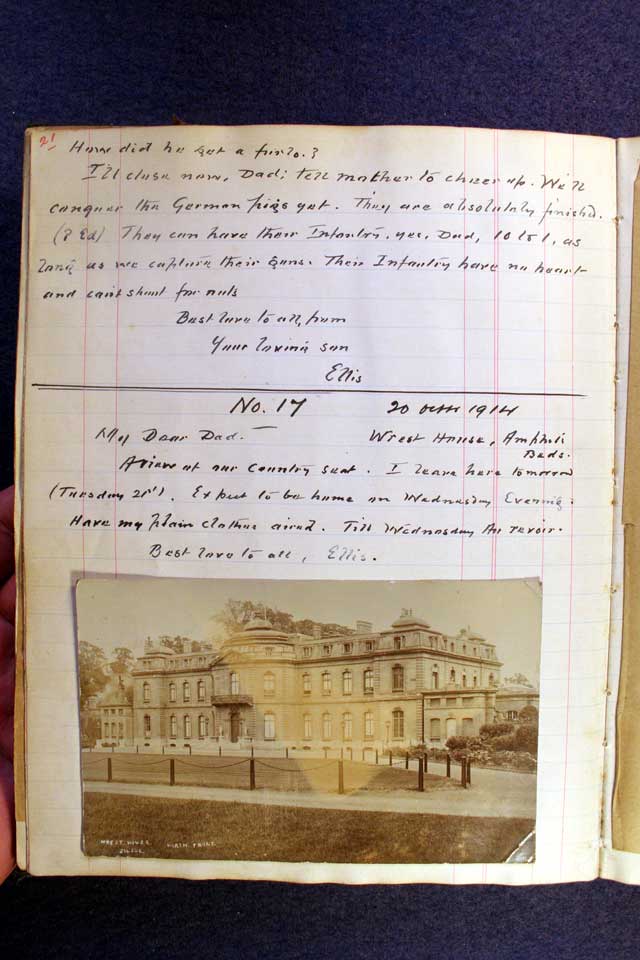 21
How did he get a furlo.?
I'll close now, Dad; tell mother to cheer up. We'll
conquer the German pigs yet. They are absolutely finished.
(? Ed) They can have their Infantry, yes, Dad, 10 to 1, as
long as we capture their guns. Their Infantry have no heart
and can't shoot for nuts
Best love to all, from
Your loving son
Ellis
No. 17 20 1914
My Dear Dad. Wrest House, Ampthill
Beds.
A view of our Country seat. I leave here tomorrow
(Tuesday 21st). Expect to be home on Wednesday Evening.
Have my plain clothes aired. Till Wednesday Au revoir.
Best love to all, Ellis.
WREST HOUSE NORTH FRONT
SILSOE